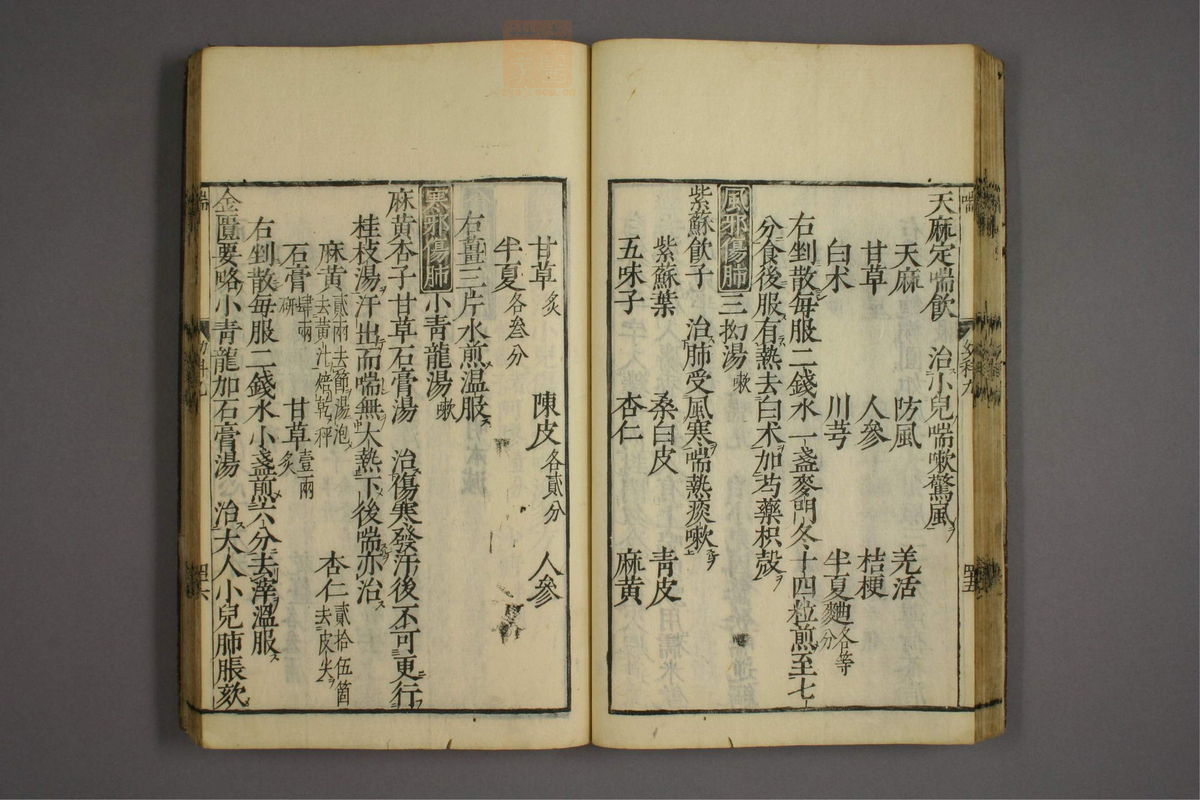 天麻定喘飲　治小兒喘嗽驚風
天麻　防風　羌活
甘草　人參　桔梗
白术　川芎　半夏麴各等分
右剉散每服二錢水一盞麥門冬十四粒煎至七
分食後服有熱去白术加芍藥枳殻
風邪傷肺　三拗湯嗽
紫蘇飲子　治肺受風寒喘熱痰嗽
紫蘇葉　桑白皮　青皮
五味子　杏仁　麻黄
甘草炙　陳皮各貳分　人參
半夏各叁分
右薑三片水煎溫服
寒邪傷肺　小青龍湯嗽
麻黄杏子甘草石膏湯　治傷寒發汗後不可更行
桂枝湯汗出而喘無大熱下後喘亦治
麻黄貳兩去節湯泡去黄汁焙乾秤　杏仁貳拾伍箇去皮尖
石膏肆兩研　甘草壹兩炙
右剉散每服二錢水小盞煎六分去滓溫服
金匱要略小青龍加石膏湯　治大人小兒肺脹欬
喘
四五
喘
四六